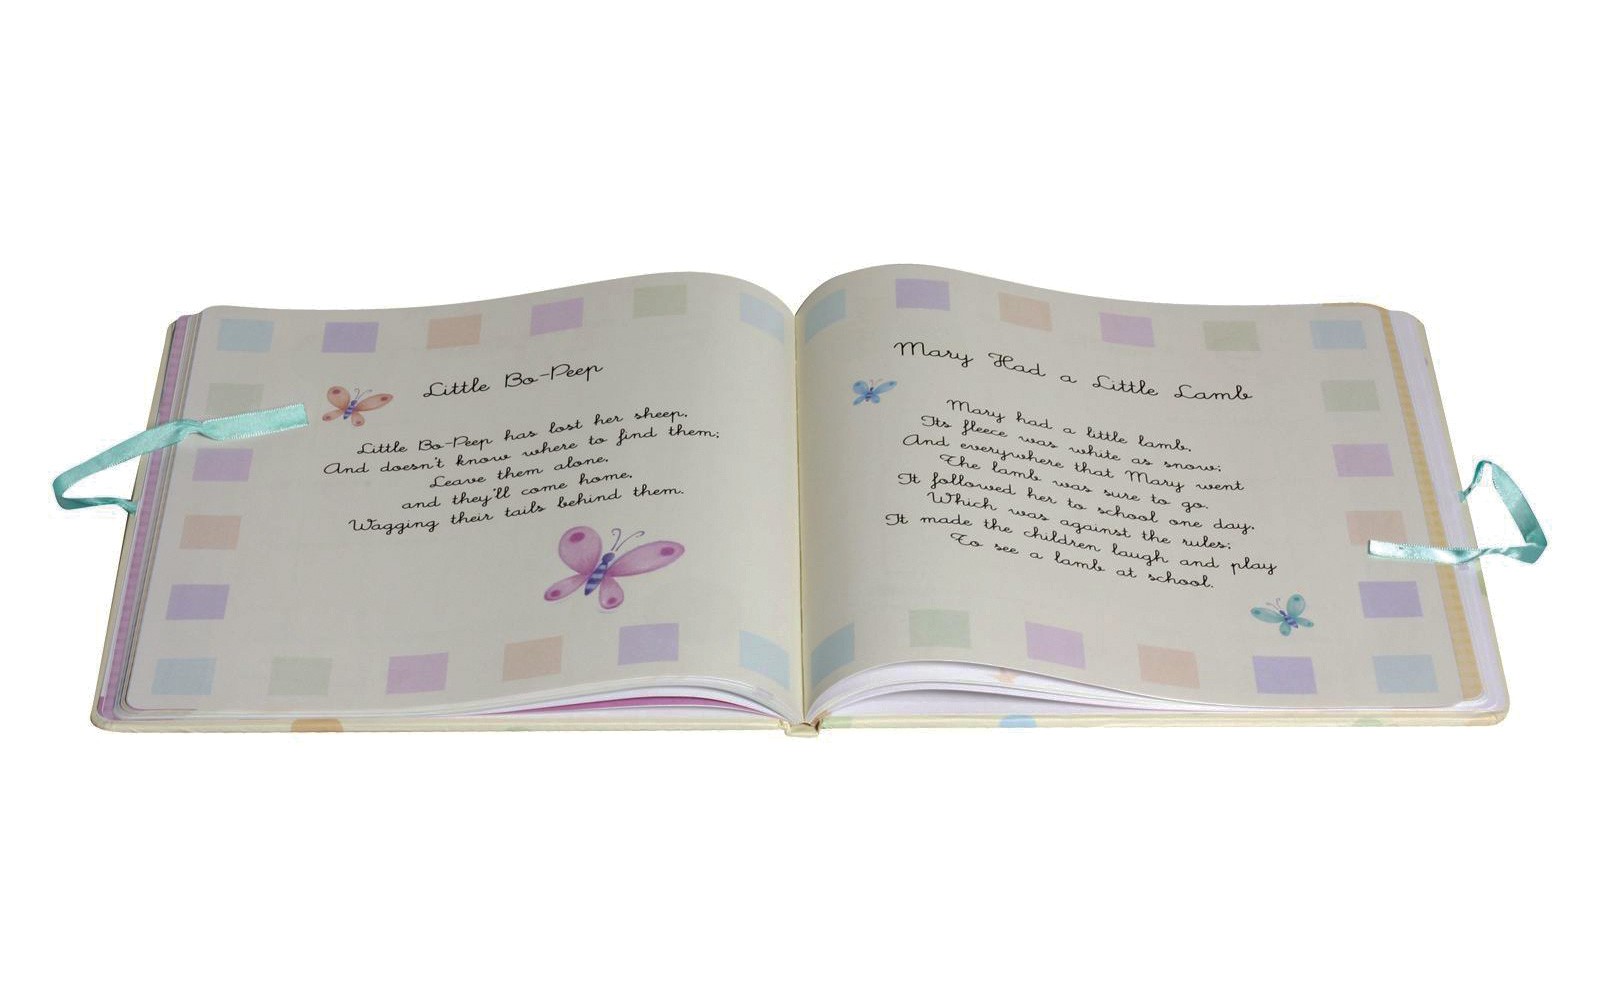 Little Bo-Peep
Little Bo-Peep has lost her sheep,
And doesn't know where to find them;
Leave them alone,
and they'll come home,
Wagging their tails behind them.
Mary Had a Little Lamb
Mary had a little lamb,
Its fleece was white as snow;
And everywhere that Mary went
The lamb was sure to go.
It followed her to school one day,
Which was against the rules;
It made the children laugh and play
To see a lamb at school.